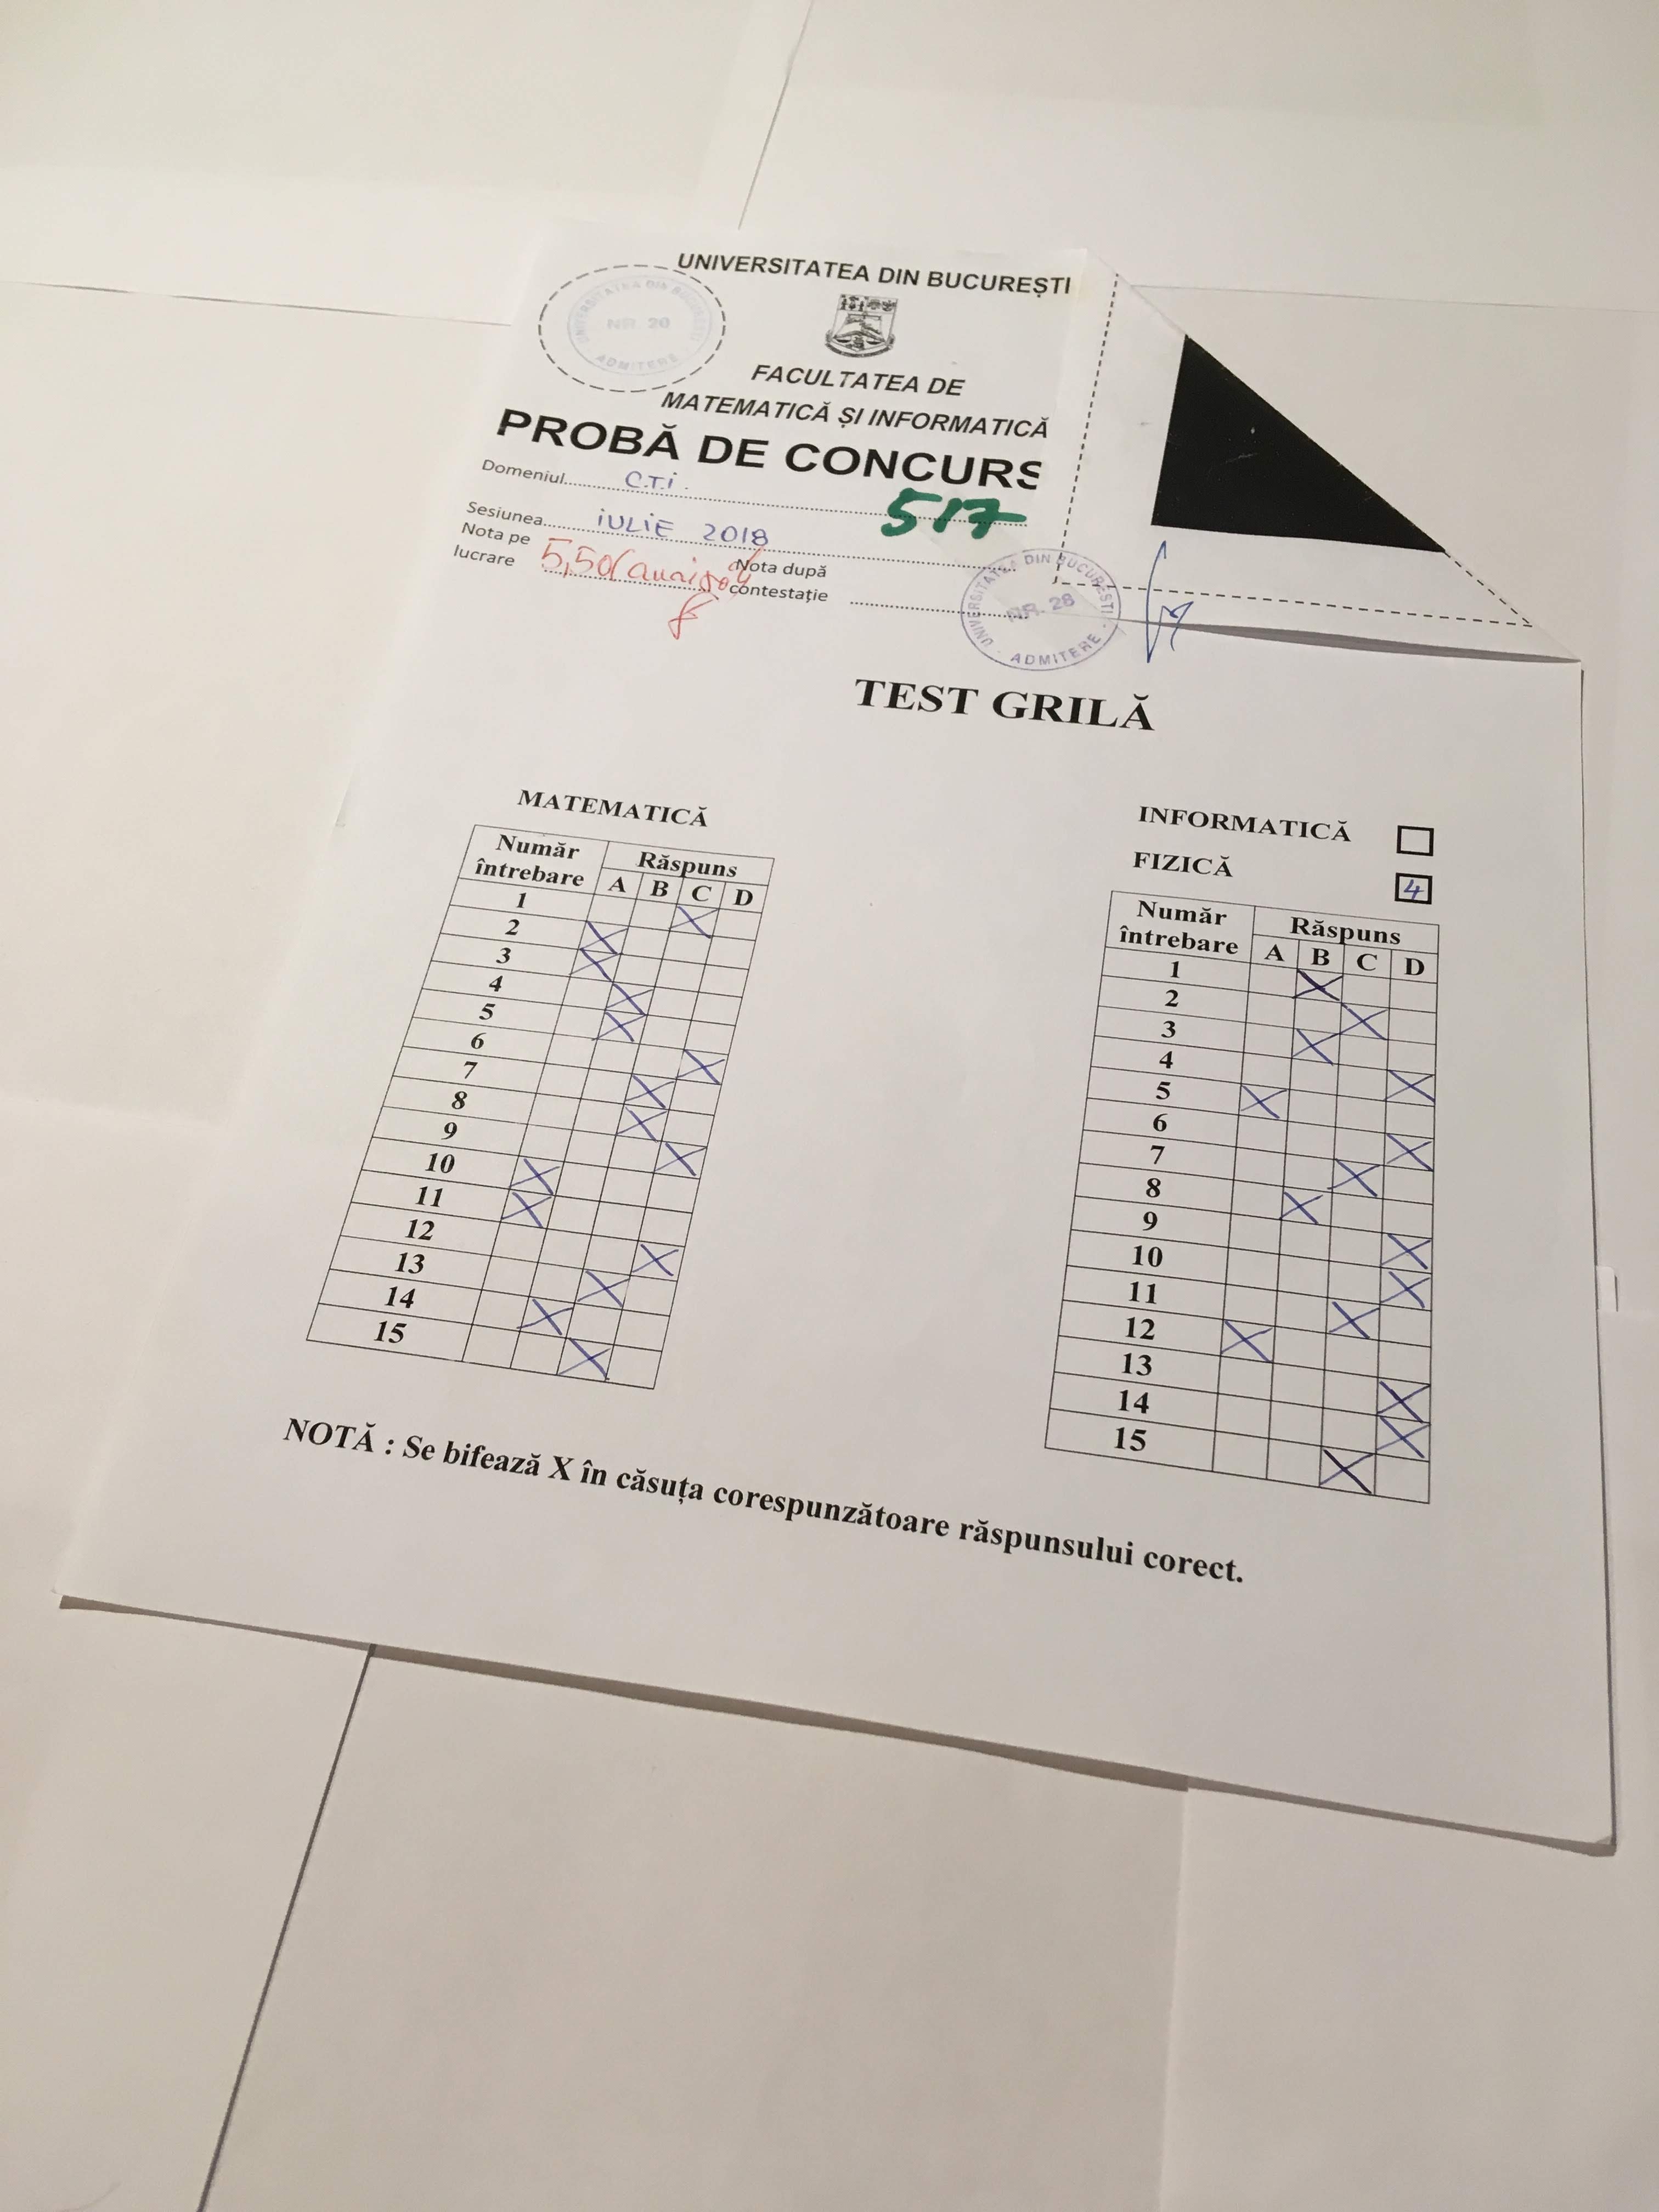 UNIVERSITATEA DIN BUCUREȘTI
UNIVERSITATEA DIN BUCUREȘTI
NR. 20
ADMITERE
FACULTATEA DE
MATEMATICĂ ȘI INFORMATICĂ
PROBĂ DE CONCURS
Domeniul C.T.i.
517
Sesiunea iULIE 2018
Nota pe
lucrare 5,50
Nota după
contestație
DIN BUCUREȘTI
NR. 28
ADMITERE
TEST GRILĂ
MATEMATICĂ
Număr întrebare Răspuns
A B C D
1 X
2 X
3 X
4 X
5 X
6 X
7 X
8 X
9 X
10 X
11 X
12 X
13 X
14 X
15 X
INFORMATICĂ
FIZICĂ 4
Număr întrebare Răspuns
A B C D
1 X
2 X
3 X
4 X
5 X
6 X
7 X
8 X
9 X
10 X
11 X
12 X
13 X
14 X
15 X
NOTĂ : Se bifează X în căsuța corespunzătoare răspunsului corect.